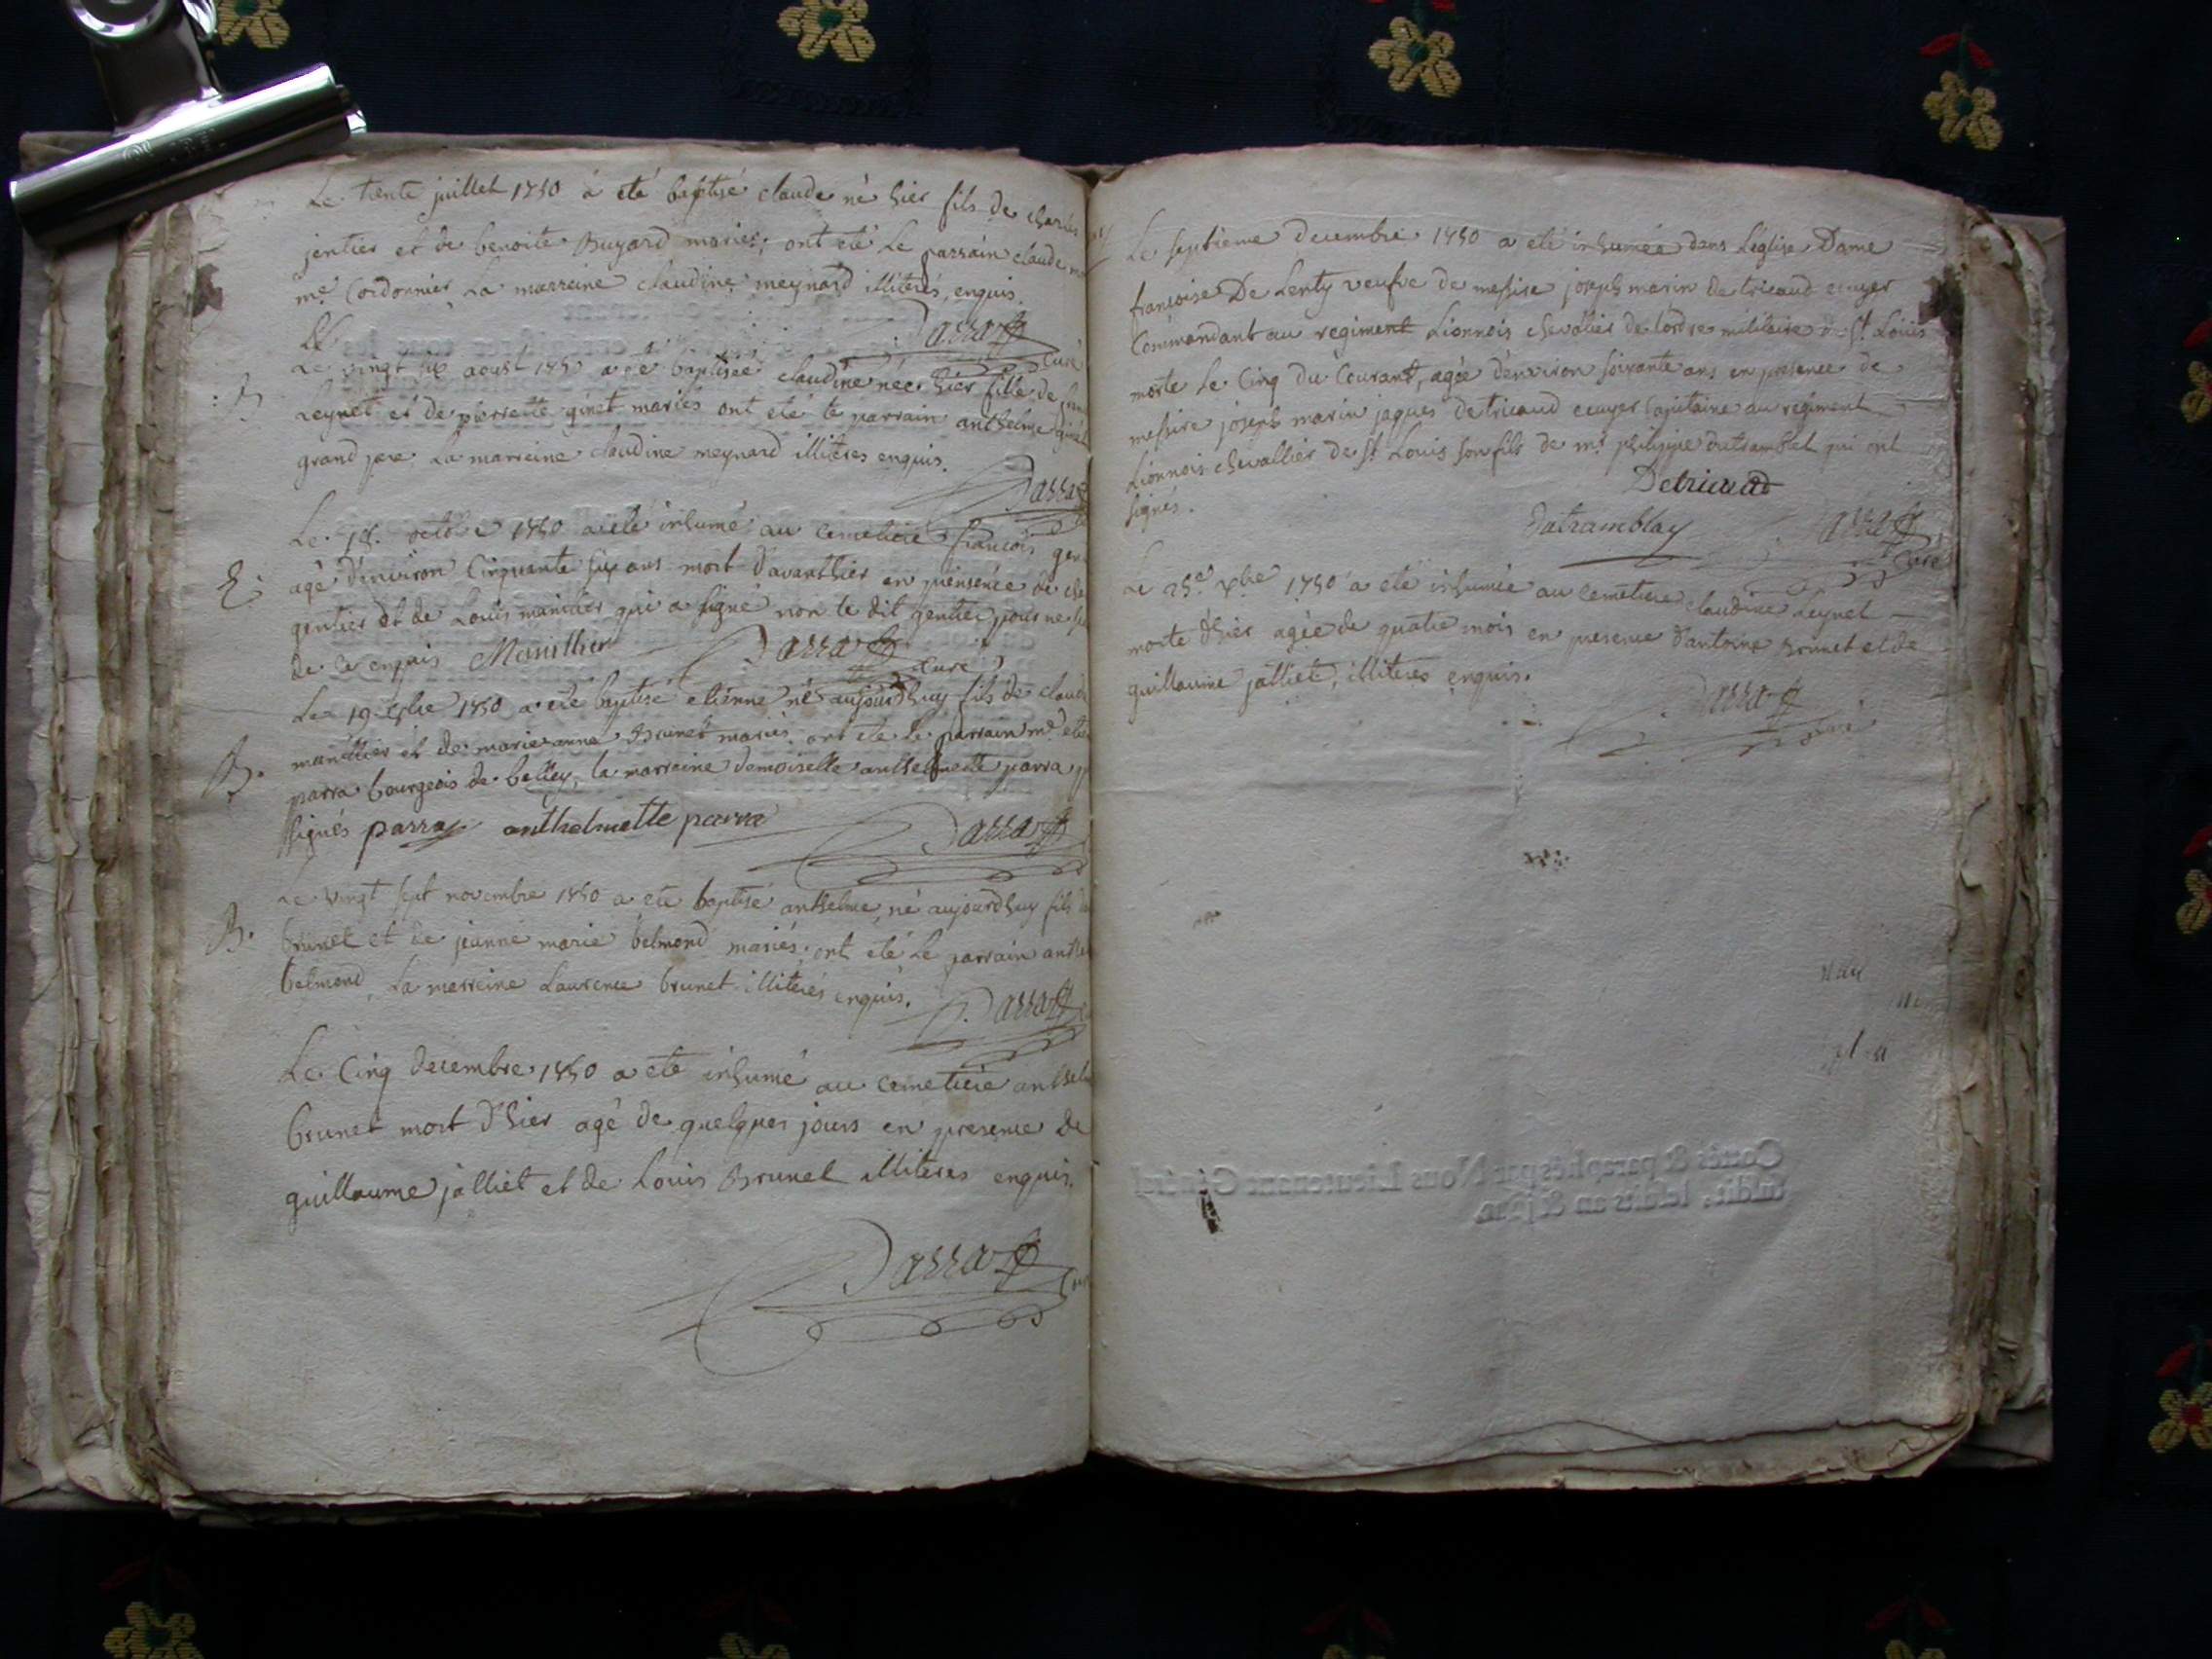 Le trente juillet 1750 à eté baptisé claude né hier fils de charles
jentier et de benoite Buyard mariés; ont eté Le parrain claude
me Cordonnier La marreine claudine meynard illiterés enquis.
Parra
curé
Le vingt six aoust 1750 a eté baptisée claudine née hier fille de
B
Leynet et de pierrette ginet mariés ont eté le parrain anthelme ginet
grand pere La marreine claudine meynard illiteres enquis.
Parra
Le 18. octobre 1750 a eté inhumé au cemetiere francois
E.
agé d'environ Cinquante six ans mort d'avanthier en presence de
gentier et de Louis manillier qui a signé non le dit gentier pour ne
de ce enquis Manillier Parra
curé
Le 19 9bre 1750 a eté baptisé etienne né aujourdhuy fils de claude
B.
manillier et de marieanne Brunet mariés ont eté le parrain mr
parra bourgeois de belley, la marreine demoiselle anthelmette parra
signés parra anthelmette parra
Parra
Le vingt sept novembre 1750 a eté baptisé anthelme, né aujourdhuy fils
B.
brunet et de jeanne marie belmond mariés; ont eté Le parrain
belmond, La marreine Laurence brunet illiterés enquis.
Parra
Le Cinq decembre 1750 a eté inhumé au cemetiere anthelme
brunet mort d'hier agé de quelques jours en presence de
guillaume jalliet et de Louis Brunet illiteres enquis.
Parra
Le septieme decembre 1750 a eté inhumée dans L'eglise Dame
francoise De Lenty veufve de messire joseph marin de tricaud ecuyer
Commandant au regiment Lionnois chevalier de lordre militaire de St Louis
morte Le Cinq du Courant, agée d'environ soixante ans en presence de
messire joseph marin jaques de tricaud ecuyer Capitaine au regiment
Lionnois chevallier de St Louis son fils de mr philippe dutramblet qui ont
signés.
Detricaud
Dutramblay Parra
curé
Le 25e xbre 1750 a eté inhumée au cemetiere claudine Leynet
morte d'hier agée de quatre mois en presence d'antoine Brunet et de
guillaume jalliet, illiteres enquis.
Parra
curé
Cottés & paraphés par Nous Lieutenant Général
susdit, lesdits an & jour